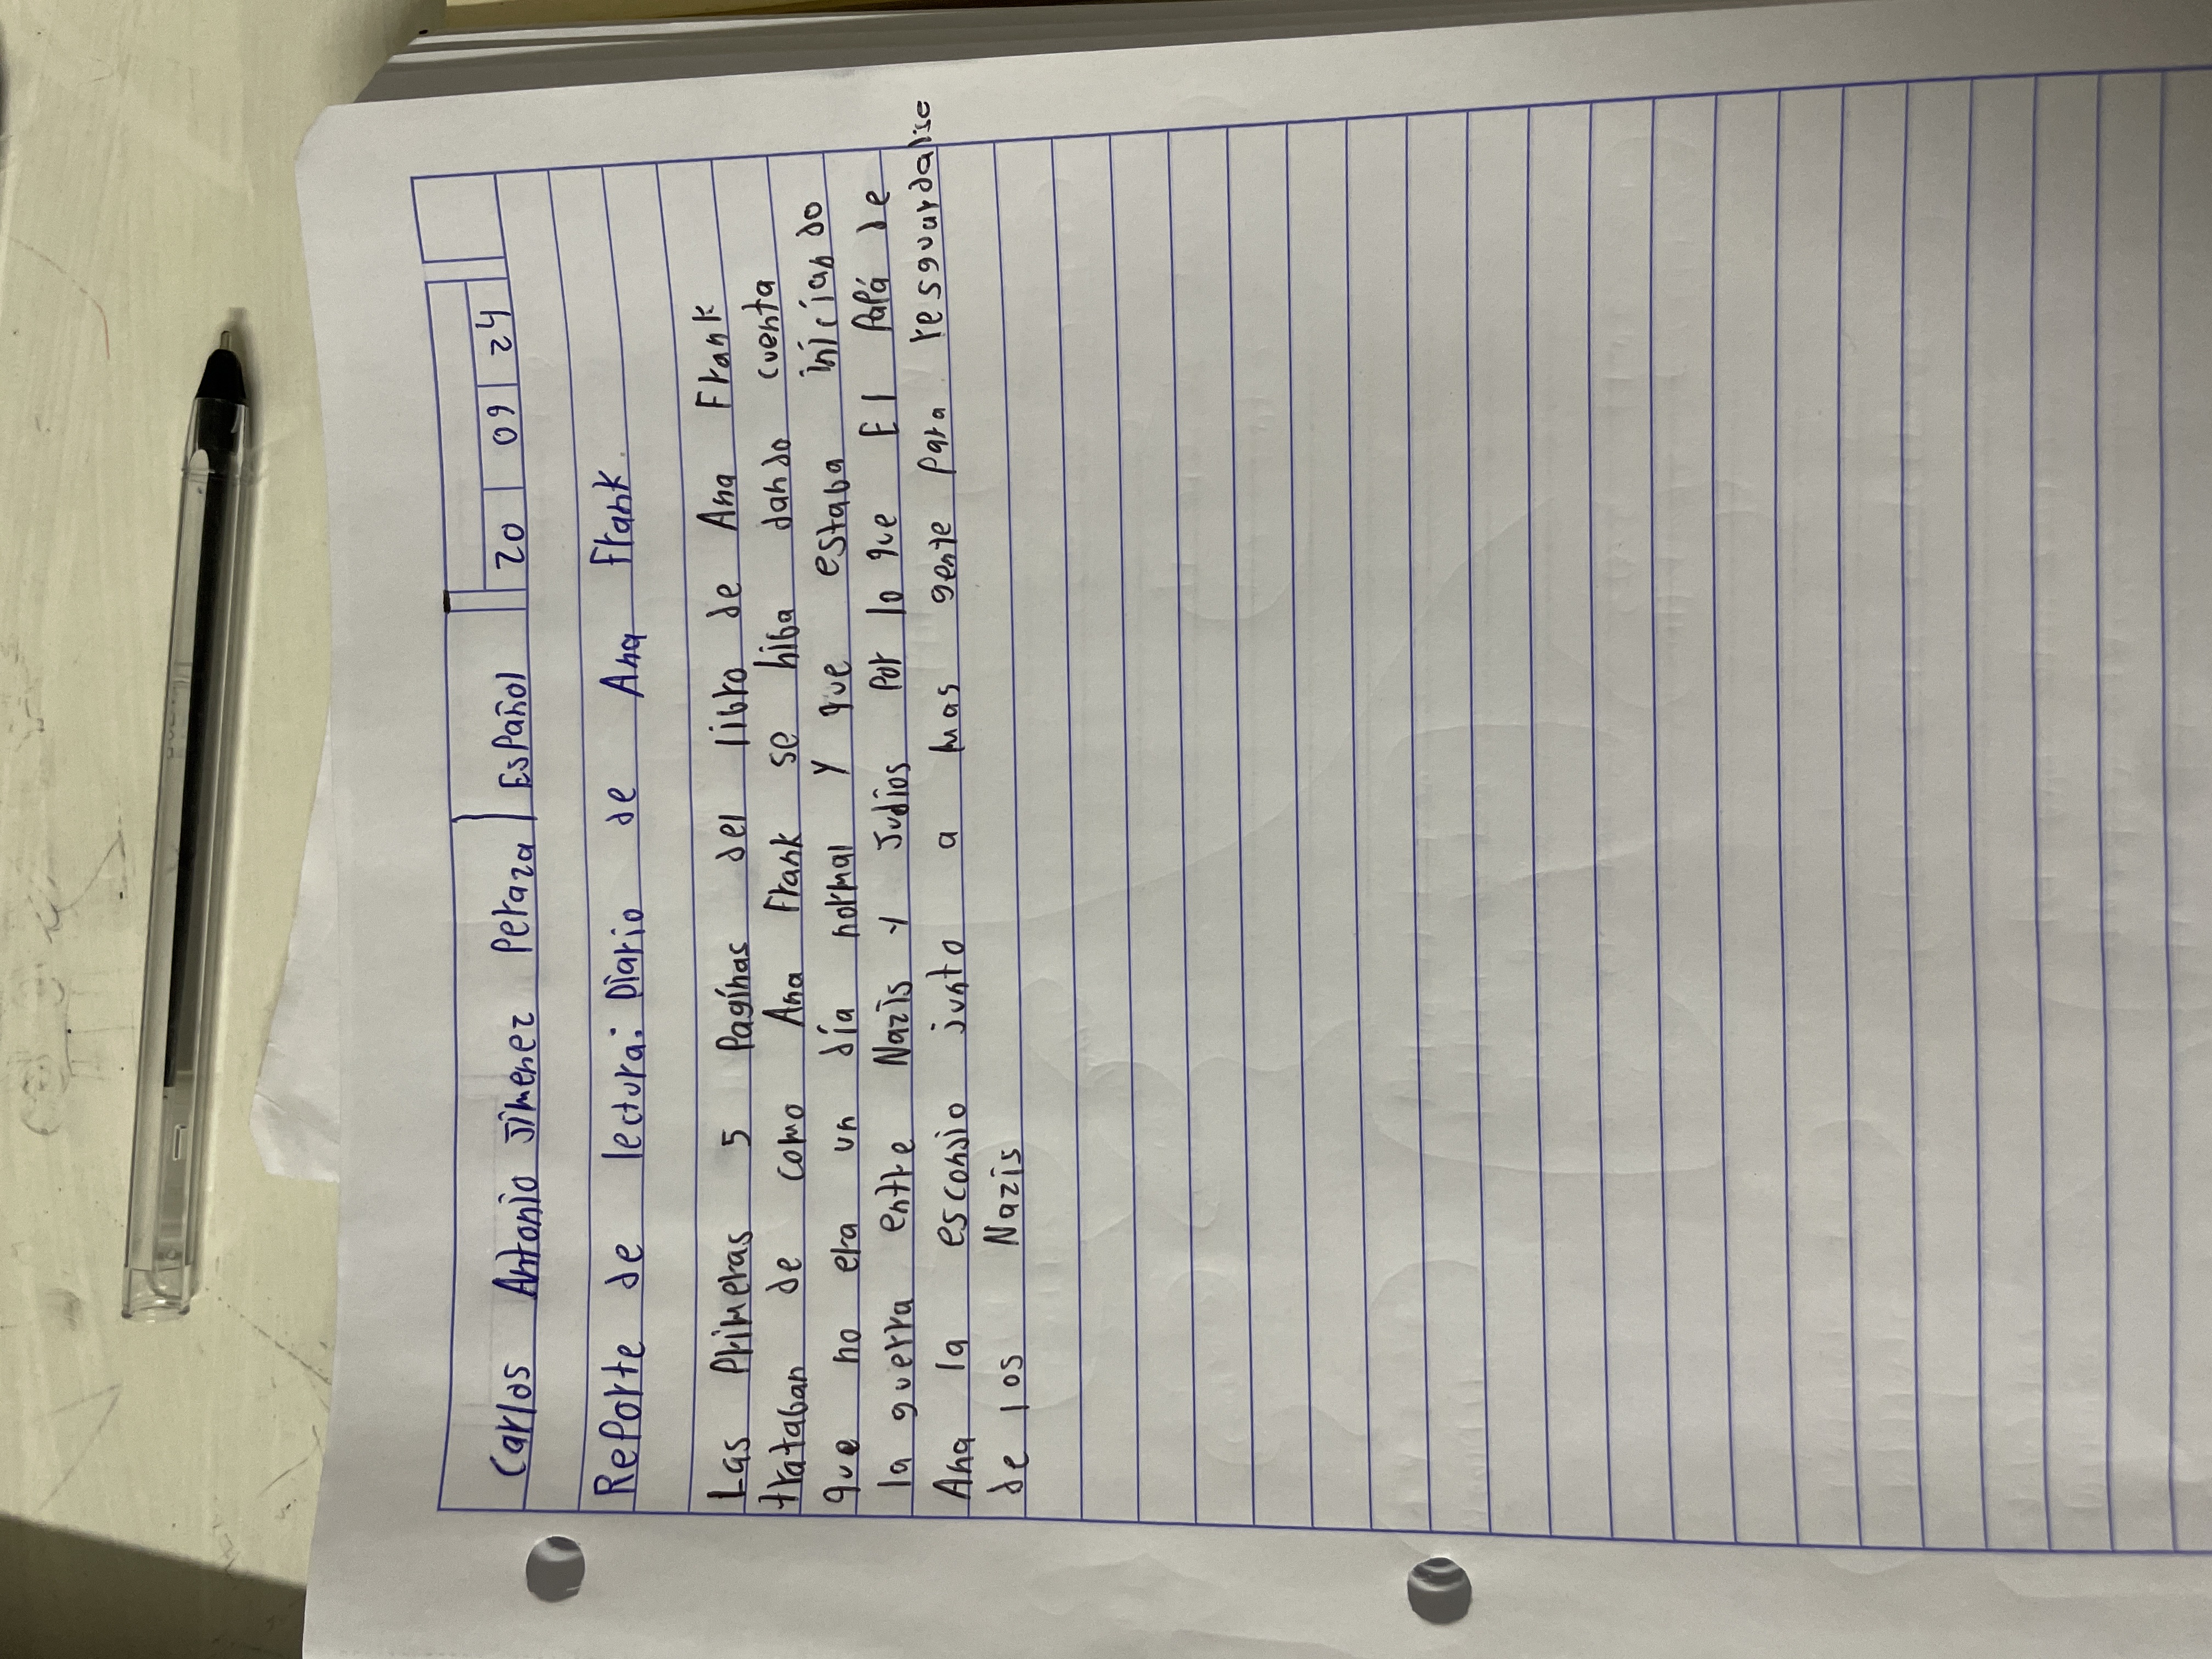 Carlos Antonio Jimenez Peraza Español 20 09 24
Reporte de lectura: Diario de Ana Frank.
Las Primeras 5 Paginas del libro de Ana Frank
trataban de como Ana Frank se hiba dando cuenta
que no era un día normal Y que estaba iniciando
la guerra entre Nazis y Judios Por lo que El Papá de
Ana la escondio junto a mas gente Para resguardalise
de los Nazis